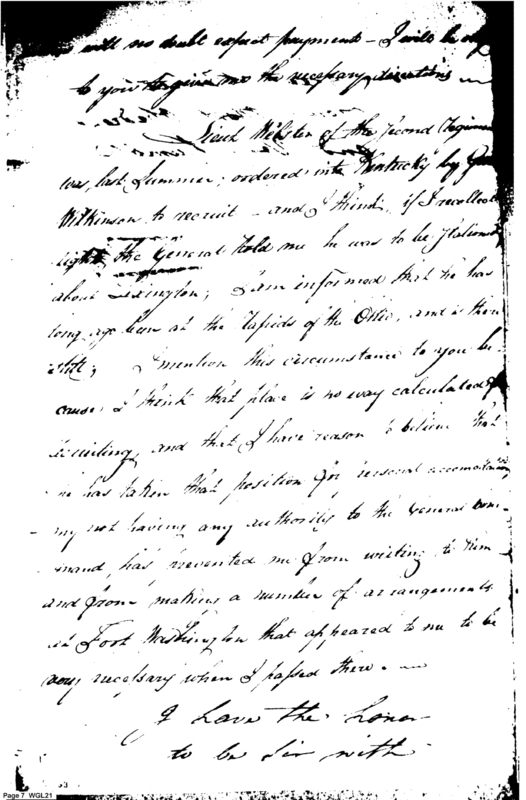 will no doubt expect payment - I will be
to you to give me the necessary directions
Lieut Webster of the Second
was, last Summer, ordered into Kentucky by
Wilkinson to recruit - and I think, if I recollect
right, the General told me he was to be stationed
about Lexington; I am informed that he has
long ago been at the Rapids of the Ohio, and is there
still; I mention this circumstance to you be
cause, I think that place is no way calculated for
recruiting, and that I have reason to believe that
he has taken that position for personal accomodation
my not having any authority to the General Com-
mand, has prevented me from writing to him
and from making a number of arrangements
at Fort Washington that appeared to me to be
very necessary when I passed there.
I have the honor
to be Sir with
Page 7 WGL21